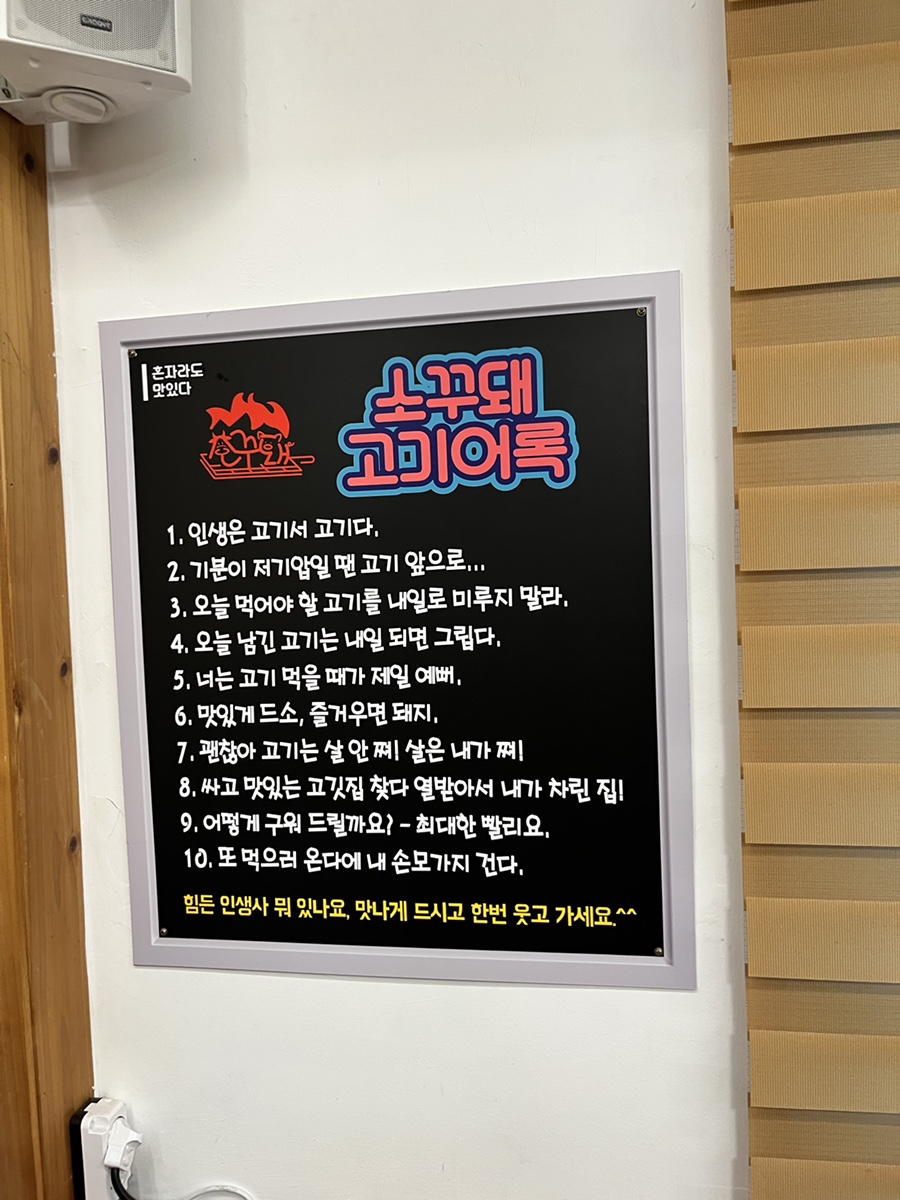 GROOVE
혼자라도
맛있다
소꾸돼
소꾸돼
고기어록
1. 인생은 고기서 고기다.
2. 기분이 저기압일 땐 고기 앞으로...
3. 오늘 먹어야 할 고기를 내일로 미루지 말라.
4. 오늘 남긴 고기는 내일 되면 그립다.
5. 너는 고기 먹을 때가 제일 예뻐.
6. 맛있게 드소, 즐거우면 돼지.
7. 괜찮아 고기는 살 안 쪄! 살은 내가 쪄!
8. 싸고 맛있는 고깃집 찾다 열받아서 내가 차린 집!
9. 어떻게 구워 드릴까요? - 최대한 빨리요.
10. 또 먹으러 온다에 내 손모가지 건다.
힘든 인생사 뭐 있나요, 맛나게 드시고 한번 웃고 가세요.^^